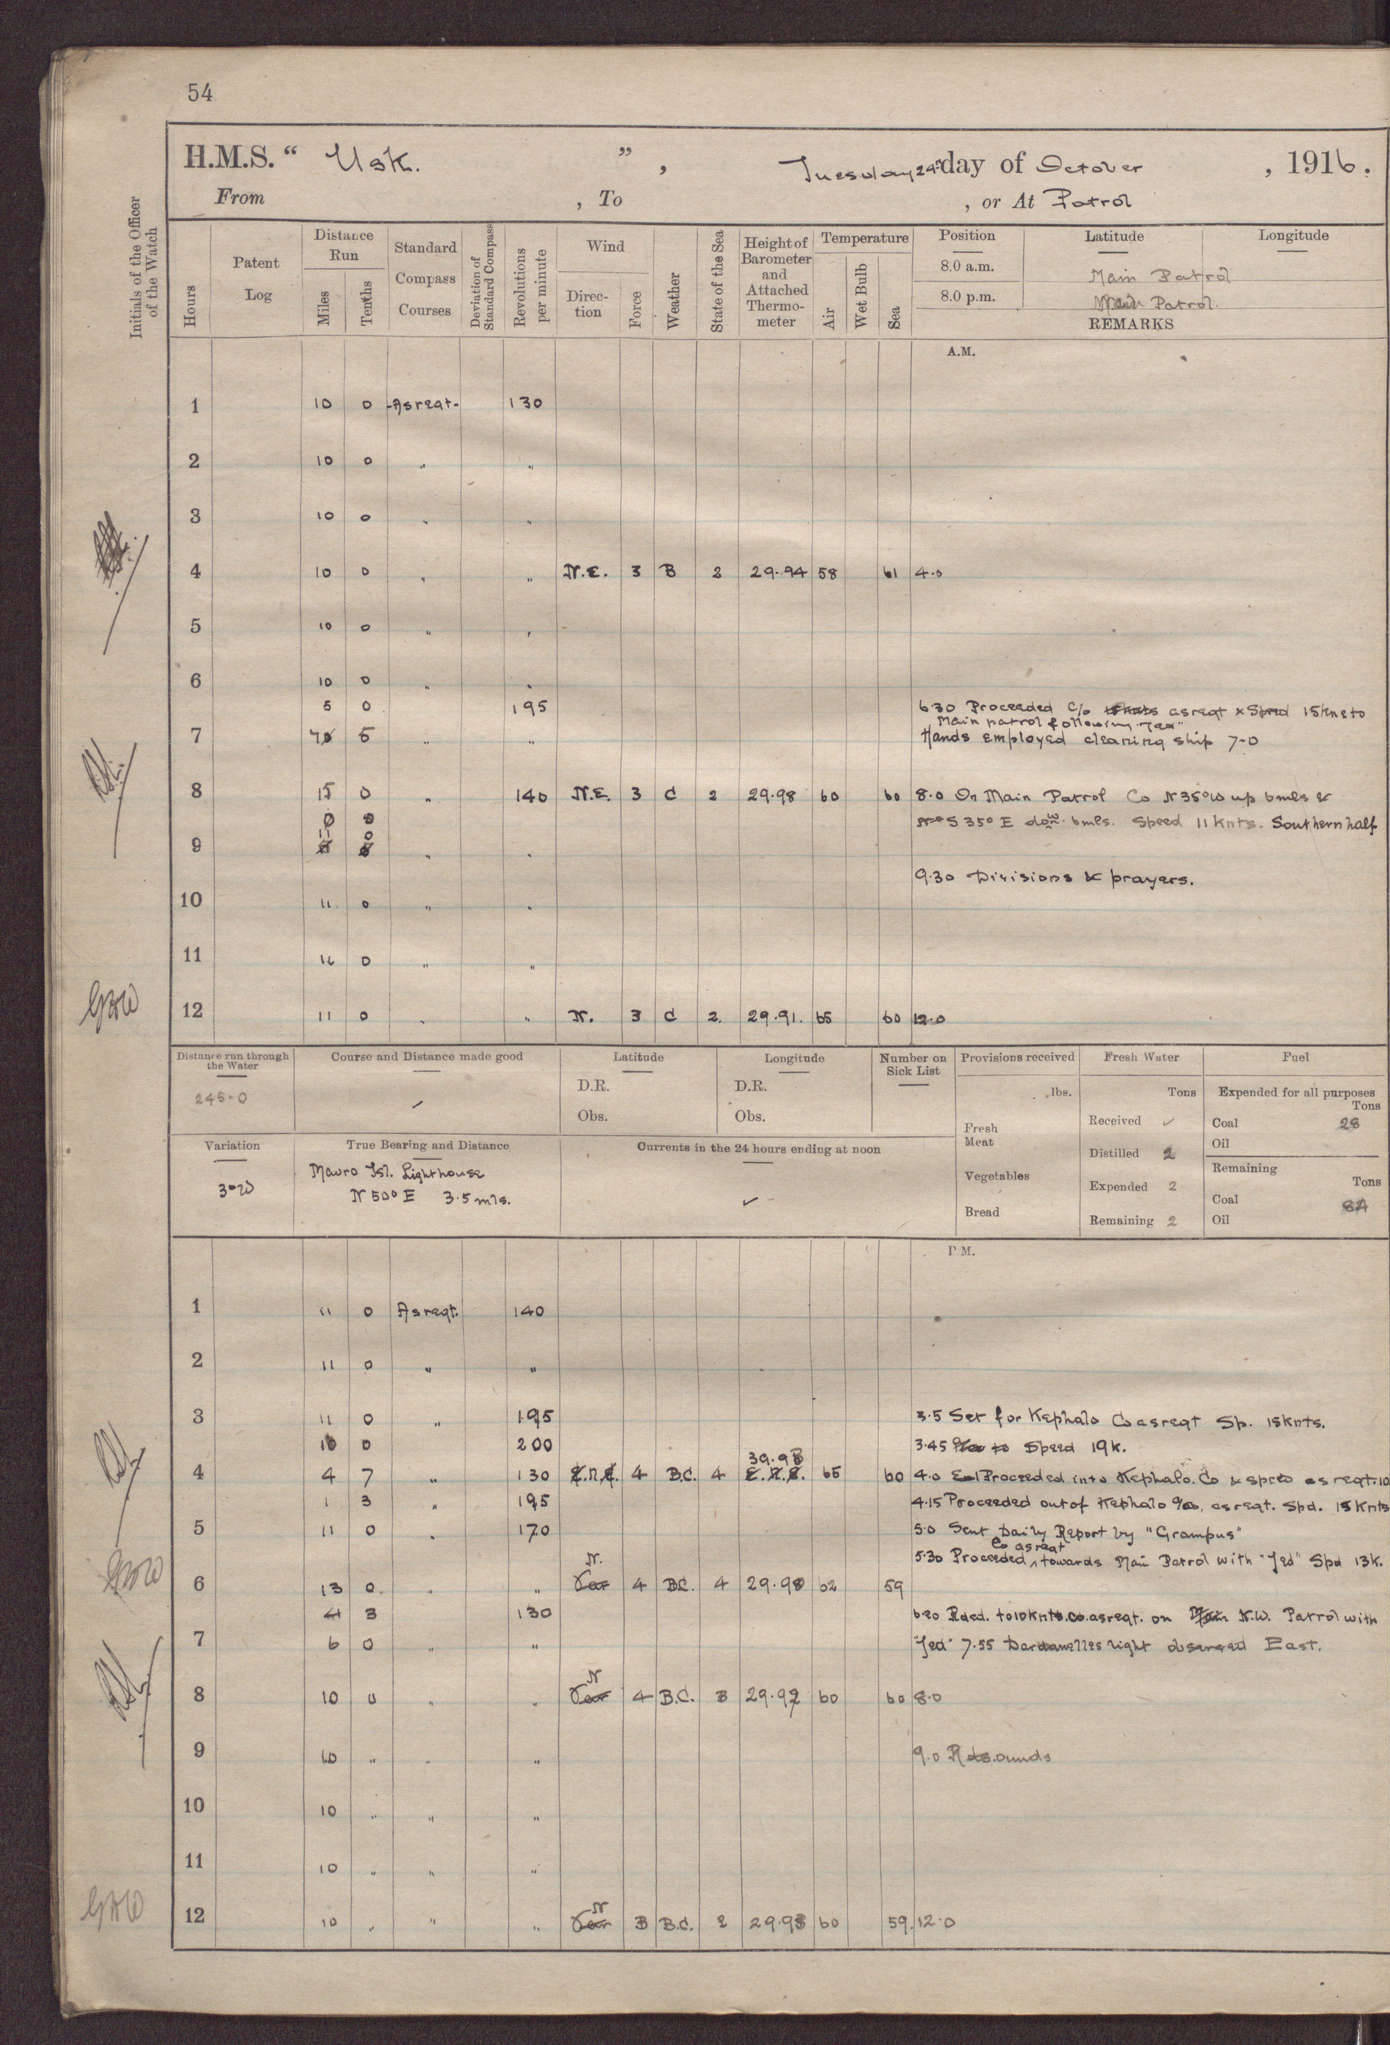 54
H.M.S. “ Usk. ” , Tuesday 24th day of October , 1916.
From , To , or At Patrol
Initials of the Officer of the Watch
Hours
Patent Log
Distance Run
Miles
Tenths
Standard Compass Courses
Deviation of Standard Compass
Revolutions per minute
Wind
Direction
Force
Weather
State of the Sea
Height of Barometer and Attached Thermometer
Temperature
Air
Wet Bulb
Sea
Position Latitude Longitude
8.0 a.m. Main Patrol
8.0 p.m. Main Patrol
REMARKS
A.M.
1 10 0 -As reqt- 130
2 10 0 " "
3 10 0 " "
4 10 0 " " N.E. 3 B 2 29.94 58 61 4.0
5 10 0 " "
6 10 0 " "
5 0 195 6.30 Proceeded C/o as reqt & Speed 15 knts to
Main patrol following "Jed"
7 5 " " Hands employed cleaning ship 7-0
8 15 0 " 140 N.E. 3 C 2 29.98 60 60 8.0 On Main Patrol Co N35°W up 6mls &
S 35° E down 6mls. Speed 11 knts. Southern half
11 0
9 " "
9.30 Divisions & prayers.
10 11 0 " "
11 11 0 " "
12 11 0 " " N. 3 C 2 29.91. 65 60 12.0
Distance run through the Water
245.0
Course and Distance made good
Latitude
D.R.
Obs.
Longitude
D.R.
Obs.
Number on Sick List
Provisions received
lbs.
Fresh Meat
Vegetables
Bread
Fresh Water
Tons
Received ✓
Distilled 2
Expended 2
Remaining 2
Fuel
Expended for all purposes
Tons
Coal 28
Oil
Remaining
Tons
Coal 84
Oil
Variation
3°W
True Bearing and Distance
Mavro Isl. Lighthouse
N 50° E 3.5 mls.
Currents in the 24 hours ending at noon
✓
P.M.
1 11 0 As reqt. 140
2 11 0 " "
3 11 0 " 195 3.5 Set for Kephalo Co as reqt Sp. 15knts.
10 0 200 3.45 Speed 19k.
4 4 7 " 130 E.N.E. 4 B.C. 4 65 60 4.0 Proceeded into Kephalo. Co & speed as reqt. 10
1 3 " 195 4.15 Proceeded out of Kephalo as reqt. Spd. 15 Knts
5 11 0 " 170 5.0 Sent Daily Report by "Grampus"
Co as reqt
5.30 Proceeded towards Main Patrol with "Jed" Spd 13k.
6 13 0 " " N. 4 B.C. 4 29.90 62 59
4 3 130 6.20 Rded. to 10 knts. co. as reqt. on N.W. Patrol with
7 6 0 " " "Jed" 7.55 Dardanelles light observed East.
8 10 0 " " N 4 B.C. 3 29.92 60 60 8.0
9 10 " " " 9.0 Rounds
10 10 " " "
11 10 " " "
12 10 " " " N 3 B.C. 2 29.93 60 59. 12.0